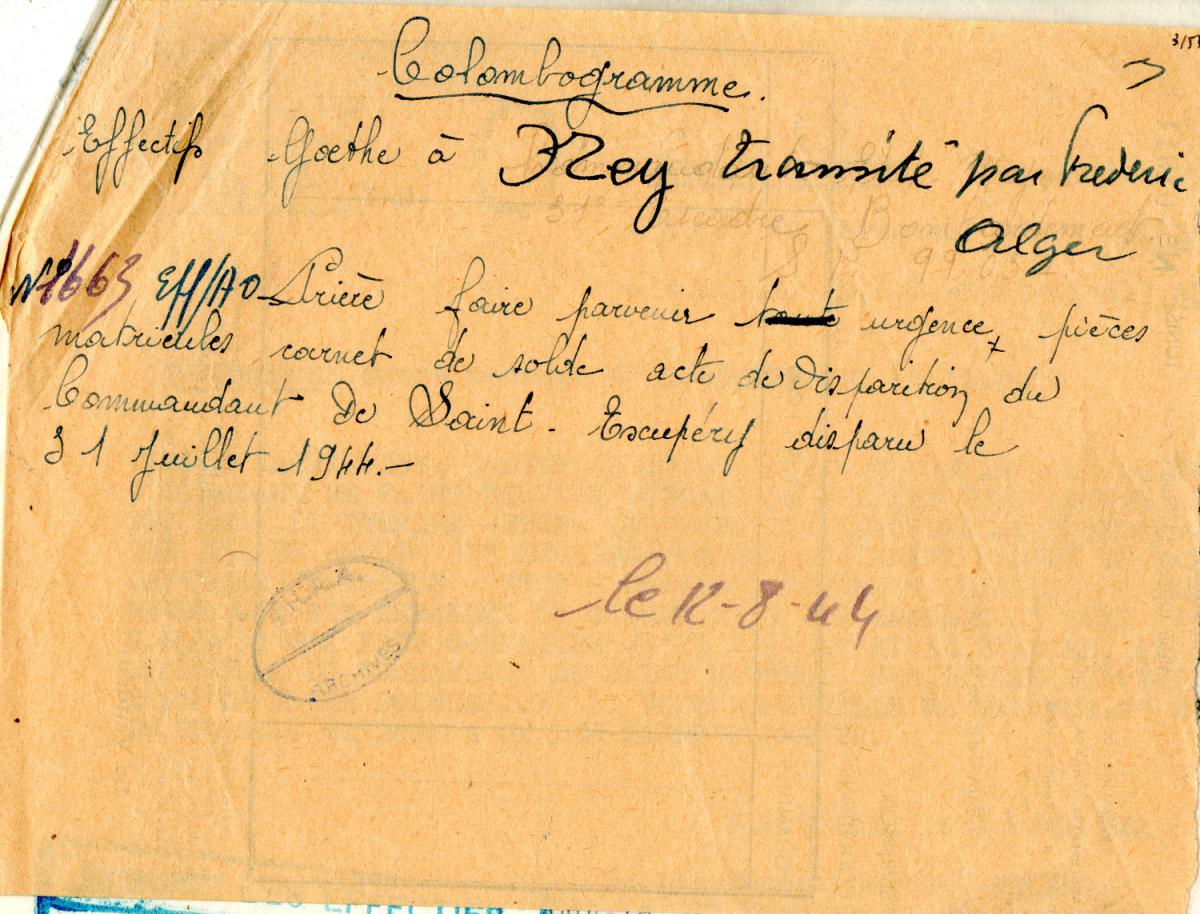 3/5
Colombogramme.
Effectifs Goethe à Rey transité par Frédéric
Alger
N°1663 Eff/AO Prière faire parvenir toute urgence, pièces
matricules carnet de solde acte de disparition du
Commandant De Saint-Exupéry disparu le
31 Juillet 1944.-
le 12-8-44
ARCHIVES